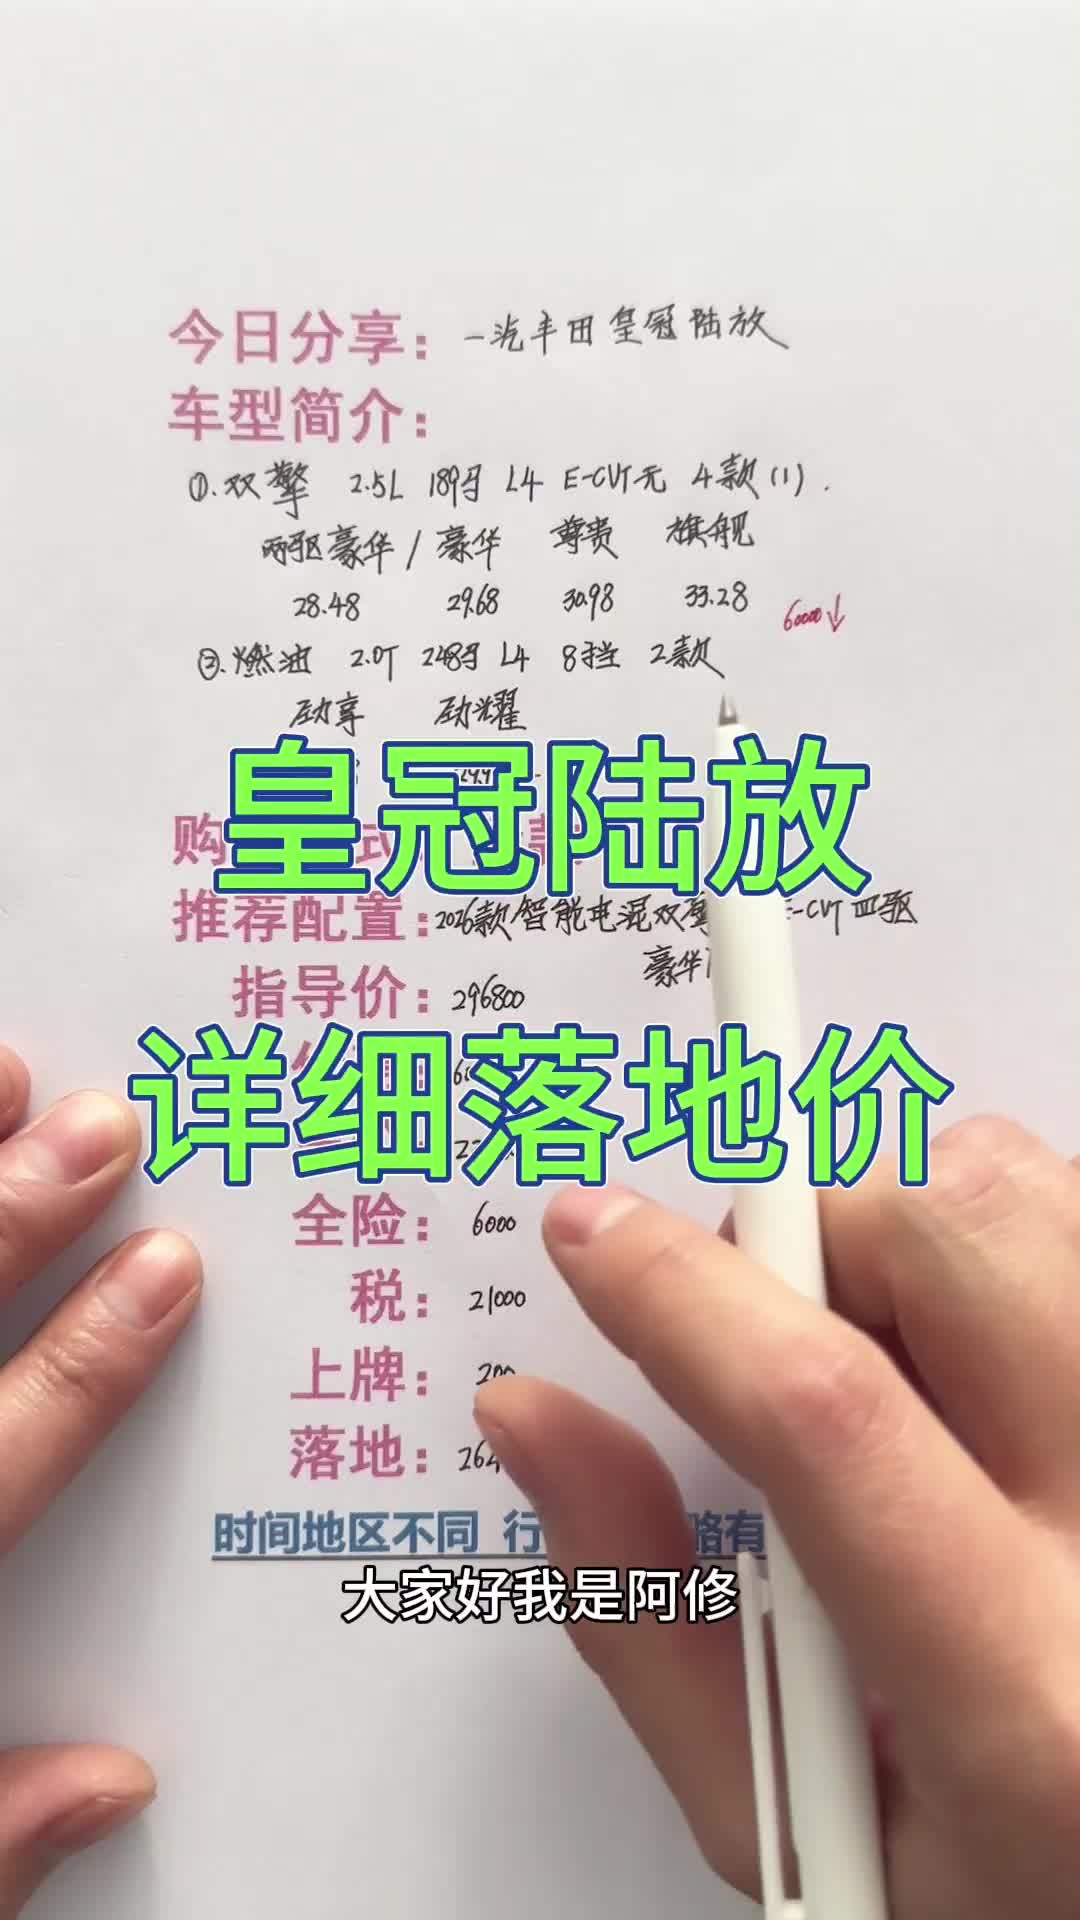 今日分享：一汽丰田皇冠陆放
车型简介：
①.双擎 2.5L 189马 L4 E-CVT无 4款(1).
两驱豪华/豪华 尊贵 旗舰
28.48 29.68 30.98 33.28 60000↓
②.燃油 2.0T 248马 L4 8挡 2款
劲享 劲耀
皇冠陆放
购
推荐配置：2026款智能电混双擎 E-CVT四驱
豪华
指导价：296800
详细落地价
全险：6000
税：21000
上牌：200
落地：264
时间地区不同 行 略有
大家好我是阿修